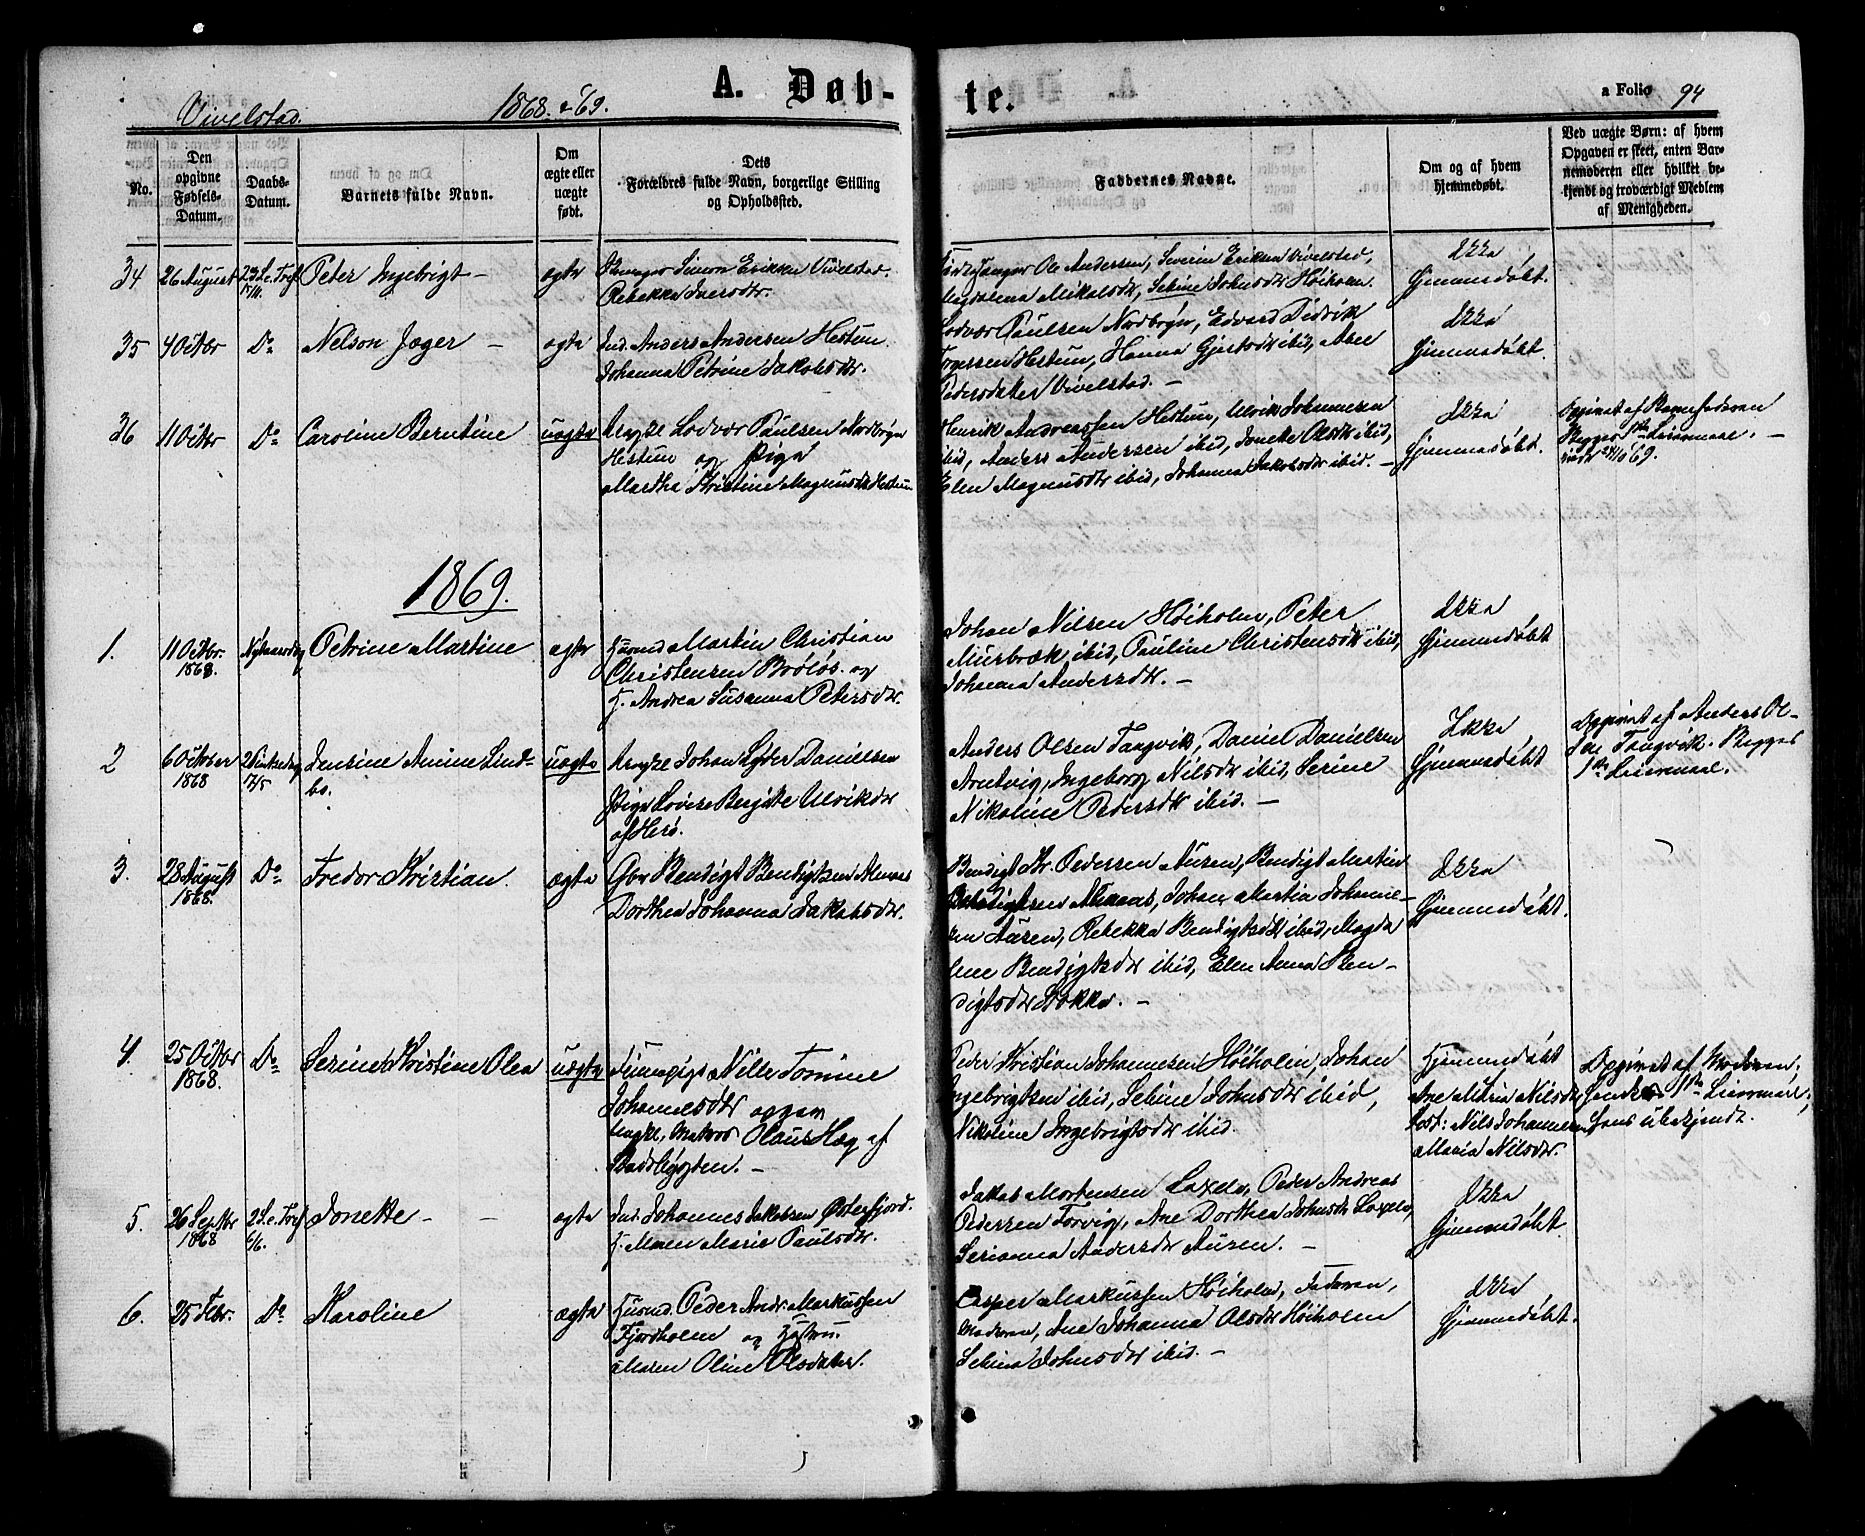 A. Døb-
te.
a Folio 94
Vivelstad.
1868. & 69.
No.
Den
opgivne
Fødsels-
Datum.
Daabs-
Datum.
Barnets fulde Navn.
Om
ægte eller
uægte
født.
Dets
Forældres fulde Navn, borgerlige Stilling
og Opholdssted.
Faddernes Navne.
Om og af hvem
hjemmedøbt.
Ved uægte Børn: af hvem
Opgaven er skeet, enten Bar-
nemoderen eller hvilket be-
kjendt og troværdigt Medlem
af Menigheden.
34
26 August
Peter Ingebrigt
ægte
Simon Eriksen Vivelstad.
Rebekka Iversdtr.
Ole Andersen, Severin Eriksen Vivelstad,
Magdalena Mikalsdtr, Sebine Johnsdtr Høiholm.
Ikke
Hjemmedøbt.
35
4 Octbr
Do
Nelson Jæger
ægte
Ind. Anders Andersen Hestun
Johanna Petrine Jakobsdtr.
Lodvær Paulsen Nordbryn, Edvard Didrik
Hestun, Hanna Gjertsdtr ibid, Ane
Pedersdatter Vivelstad.
Ikke
Hjemmedøbt.
36
11 Octbr
Do
Caroline Berntine
uægte
Ungkl Lodvær Paulsen Nordbryn
Hestun og Pige
Martha Kristine Magnusdtr Hestun
Henrik Andreassen Hestun, Ulrik Johannesen
ibid, Anders Andersen ibid, Jonette Olsdtr ibid,
Elen Magnusdtr ibid, Johanna Jakobsdtr ibid.
Ikke
Hjemmedøbt.
Opgivet af Barnefaderen
Begges 1ste Leiermaal.
69.
1869.
1.
11 Octbr.
1868.
Nytaarsdag
Petrine Martine
ægte
Husmd Martin Christian
Christensen Brøløs. og
H. Andrea Susanna Petersdtr.
Johan Nilsen Høiholm, Peter
Murbræk ibid, Pauline Christensdtr ibid,
Johanna Andersdtr.
Ikke
Hjemmedøbt
2
6 October
1868
2 Pintsedag
17/5
Jensine Amine Lind-
bo.
uægte
Ungkl Johan Lyder Danielsen
Pige Lovise Bergitte Ulriksdtr
af Herø.
Anders Olsen Tangvik, Daniel Danielsen
Arntvig, Ingeborg Nilsdtr ibid, Serine
Nikoline Pedersdtr ibid.
Ikke
Hjemmedøbt
Opgivet af Anders Ol-
sen Tangvik. Begges
1ste Leiermaal.
3.
28 August
1868.
Do
Fredor Kristian.
ægte
Gbr Bendigt Bendigtsen Alenæs
Dorthea Johanna Jakobsdtr.
Bendigt Kr. Pedersen Ausen, Bendigt Martin
Bendigtsen Alenæs, Johan Martin Johanne-
sen Ausen, Rebekka Bendigtsdtr ibid, Magda
lene Bendigtsdtr ibid, Elen Anna Ben-
digtsdtr Stokka.
Ikke
Hjemmedøbt.
4.
25 Octbr
1868.
Do
Serine Kristine Olea
uægte
Nille Tomine
Johannesdtr og
Ungkl, Matros Olaus Hag af
Stadsbygden.
Peder Kristian Johannesen Høiholm, Johan
Ingebrigtsen ibid, Sebine Johnsdtr ibid,
Nikoline Ingebrigtsdtr ibid.
Hjemmedøbt
Ane Maria Nilsdtr
Test: Nils Johannesen
Maria Nilsdtr.
Opgivet af Moderen;
hendes 1ste Leiermaal;
hans ubekjendt.
5.
26 Septbr
1868
6/6.
Jonette
ægte
Ind. Johannes Jakobsen Østerfjord.
H. Maren Marie Paulsdtr.
Jakob Mortensen Laxelv, Peder Andreas
Pedersen Forvig, Ane Dorthea Johnsdtr Laxelv,
Serianna Andersdtr Ausen.
Ikke
Hjemmedøbt.
6.
25 Febr.
Do
Karoline
ægte
Husmd. Peder Andr. Markussen
Fjordholm og Hustru.
Maren Oline Olsdatter.
Casper Markussen Høiholm, Faderen,
Moderen, Ane Johanna Olsdtr Høiholm
Sebina Johnsdtr ibid.
Ikke
Hjemmedøbt.